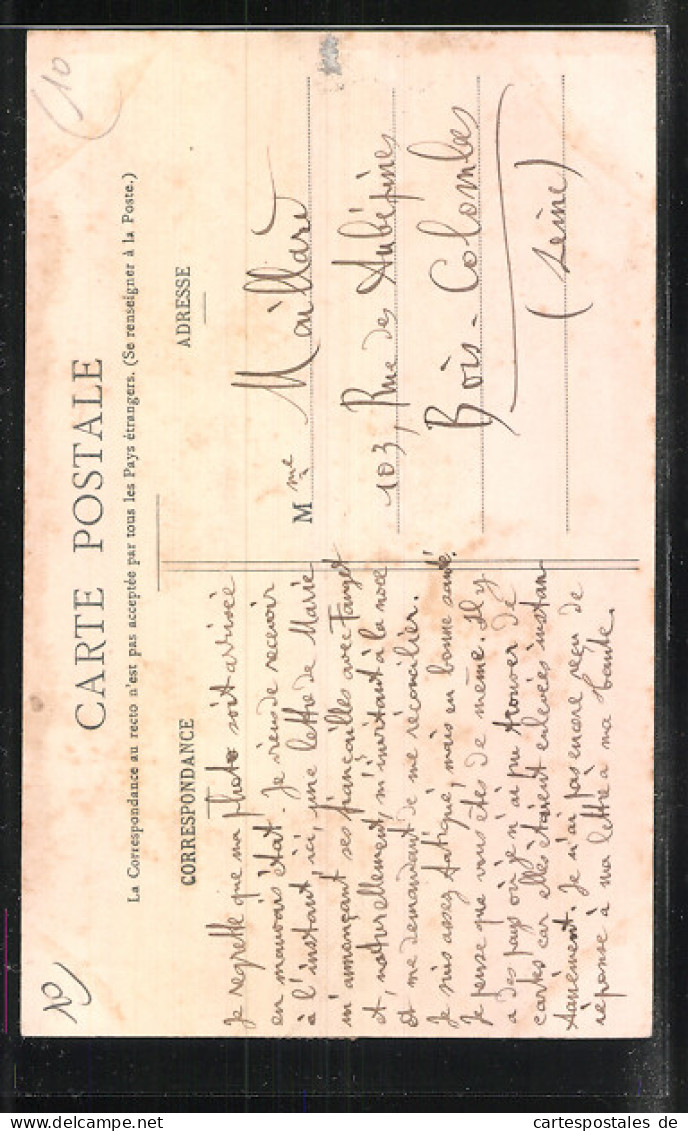 10
No
CARTE POSTALE
La Correspondance au recto n'est pas acceptée par tous les Pays étrangers. (Se renseigner à la Poste.)
CORRESPONDANCE
Je regrette que ma photo soit arrivée
en mauvais état. Je viens de recevoir
à l'instant, ici, une lettre de Marie
m'annonçant ses fiançailles avec
et, naturellement, m'invitant à la noce
et me demandant de me réconcilier.
Je suis assez fatigué, mais en bonne santé.
Je pense que vous êtes de même. Il y
a des pays où je n'ai pu trouver de
cartes car elles étaient enlevées instan
tanément. Je n'ai pas encore reçu de
réponse à ma lettre à ma tante.
ADRESSE
Mme Maillard
103, Rue des Aubépines
Bois-Colombes
(Seine)
cartespostales de